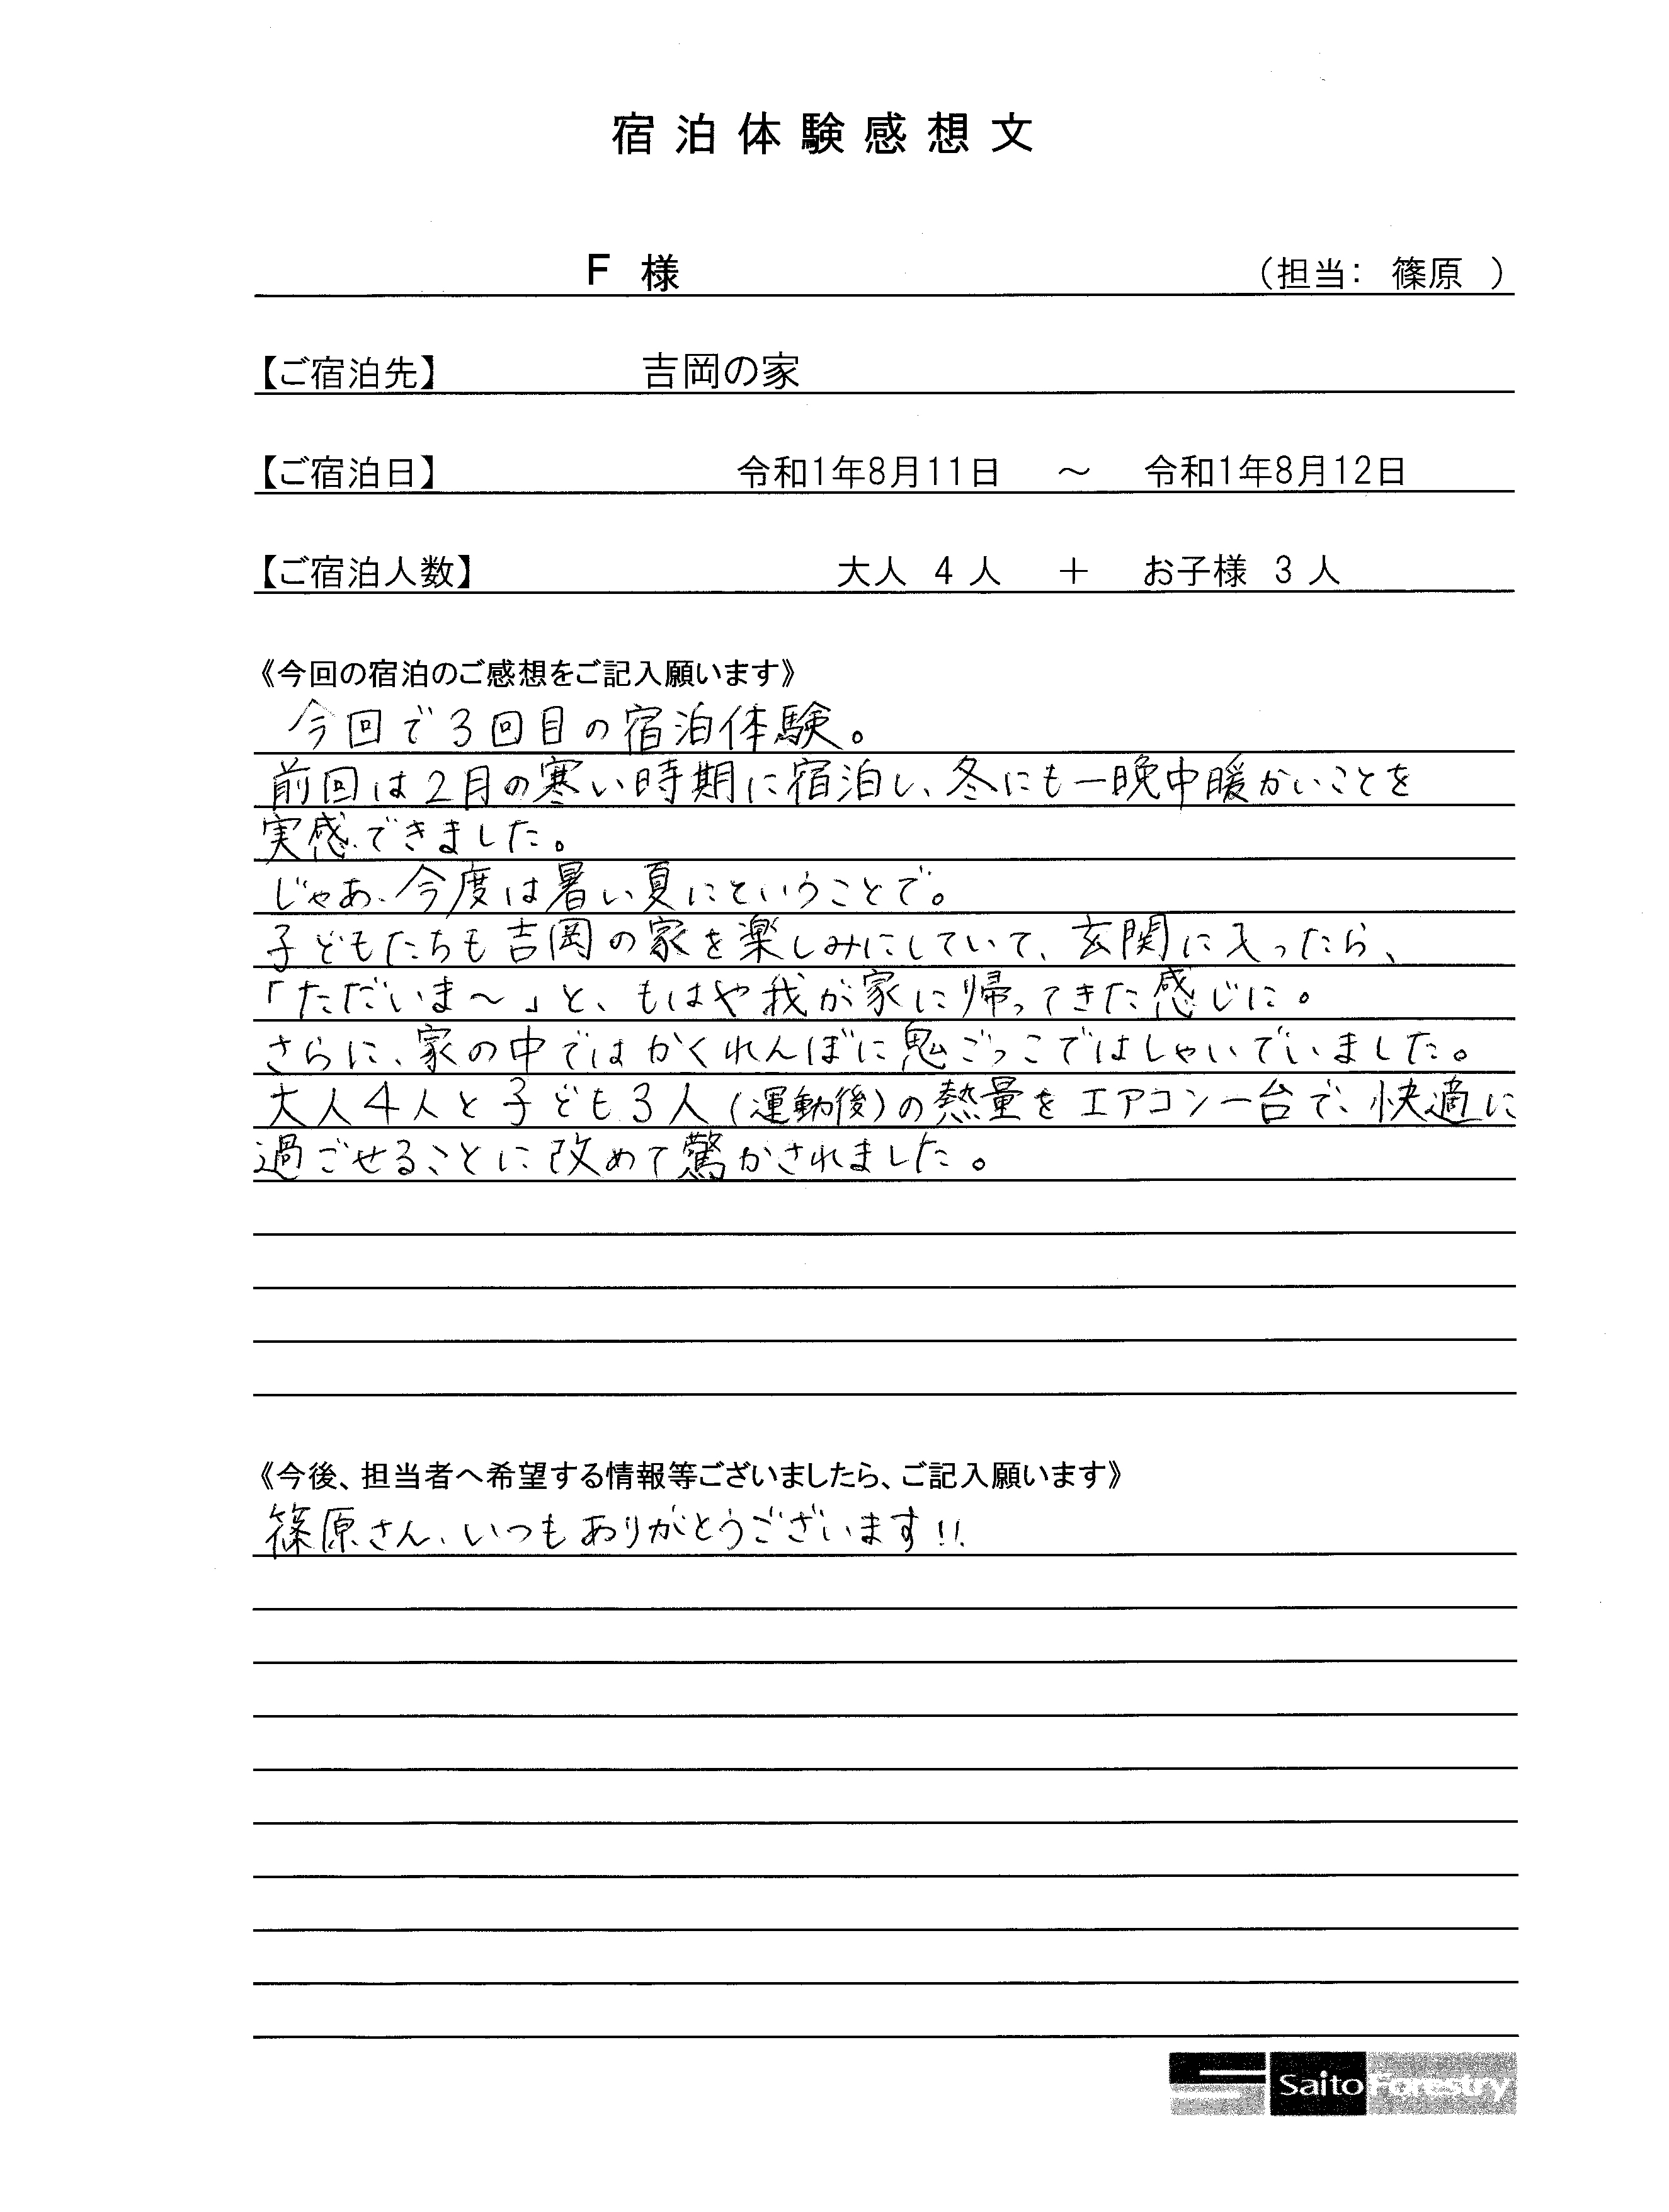 宿泊体験感想文
F 様 (担当: 篠原 )
【ご宿泊先】 吉岡の家
【ご宿泊日】 令和1年8月11日 ~ 令和1年8月12日
【ご宿泊人数】 大人 4 人 + お子様 3 人
《今回の宿泊のご感想をご記入願います》
今回で3回目の宿泊体験。
前回は2月の寒い時期に宿泊し、冬にも一晩中暖かいことを
実感できました。
じゃあ、今度は暑い夏にということで。
子どもたちも吉岡の家を楽しみにしていて、玄関に入ったら、
「ただいま～」と、もはや我が家に帰ってきた感じに。
さらに、家の中ではかくれんぼに鬼ごっこではしゃいでいました。
大人4人と子ども3人(運動後)の熱量をエアコン一台で、快適に
過ごせることに改めて驚かされました。
《今後、担当者へ希望する情報等ございましたら、ご記入願います》
篠原さん、いつもありがとうございます!!
Saito Forestry